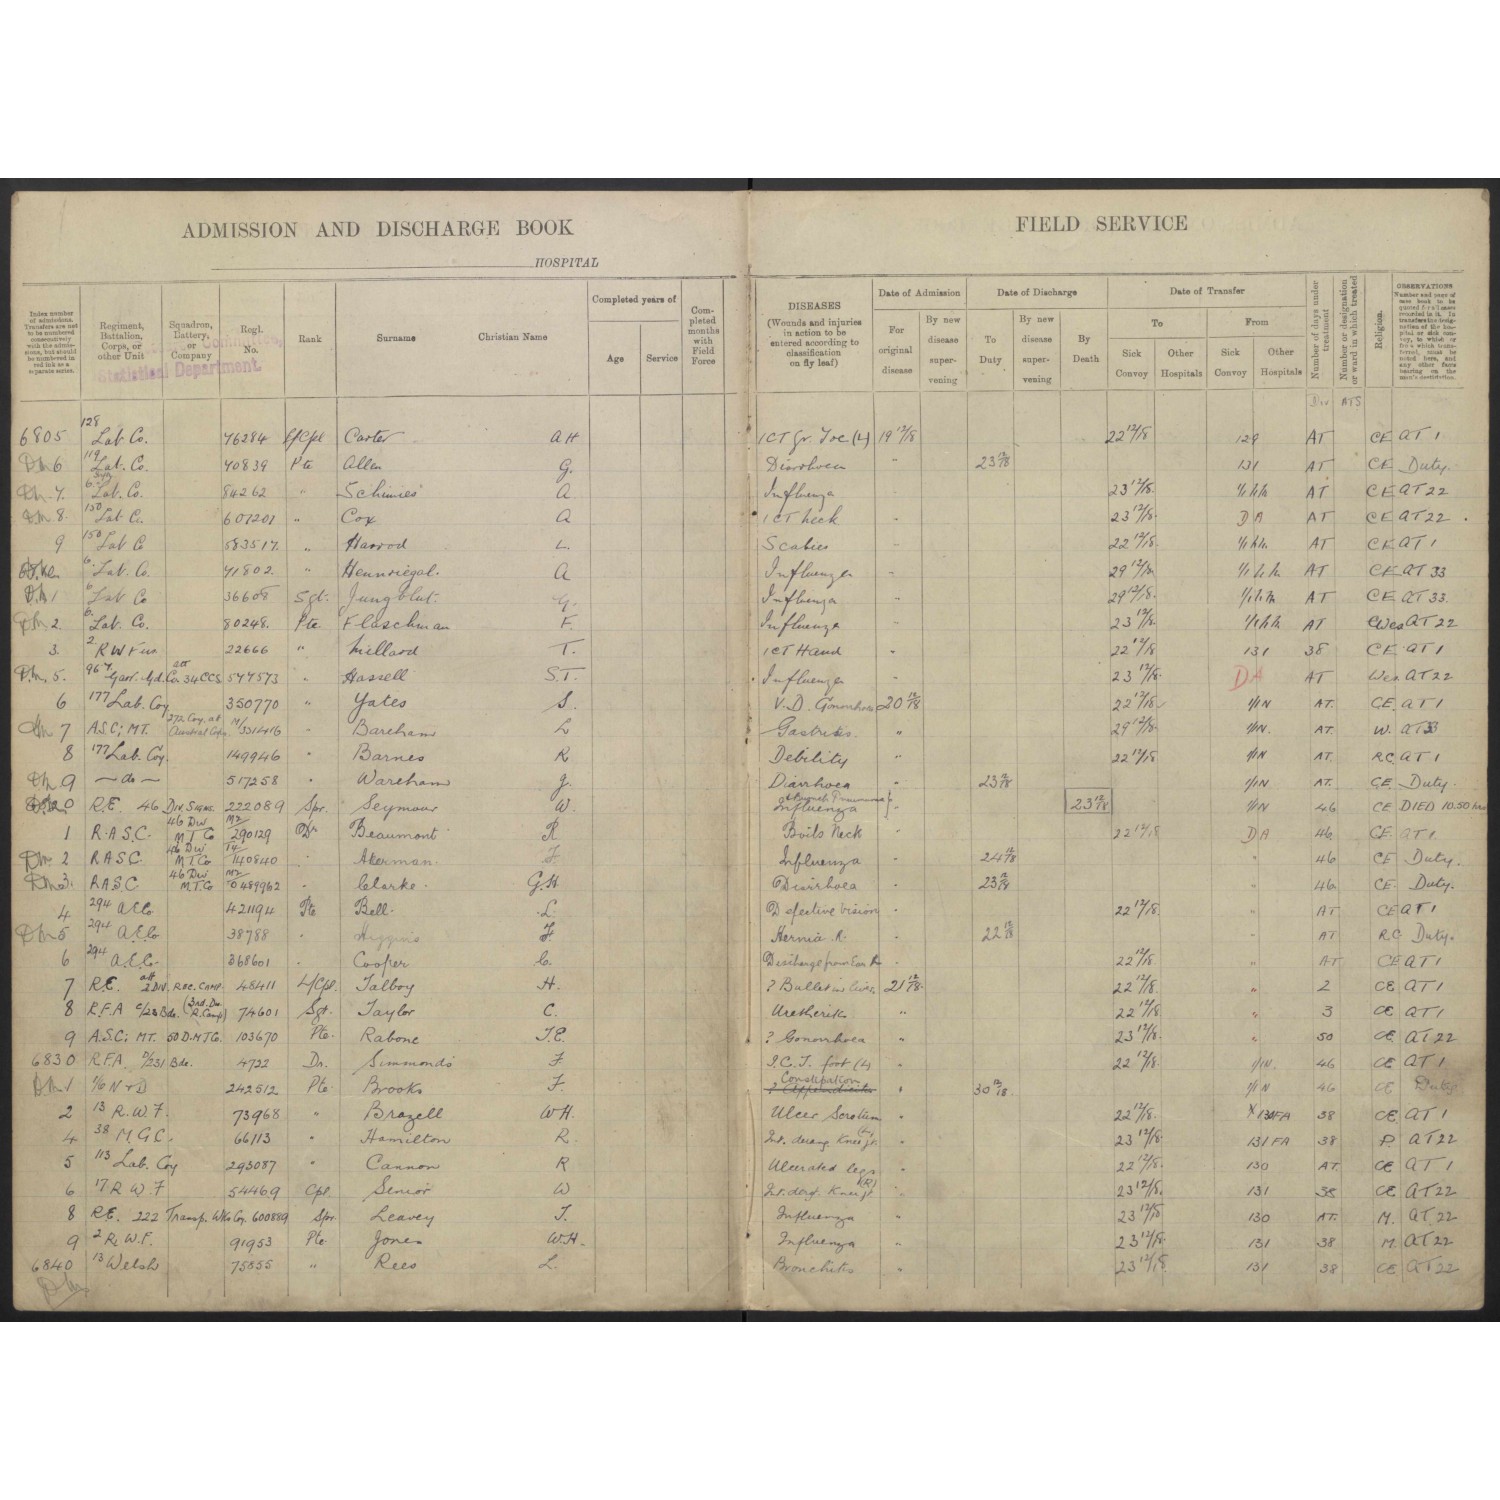 ADMISSION AND DISCHARGE BOOK
FIELD SERVICE
HOSPITAL
Index number of admissions. Transfers are not to be numbered consecutively with the admissions, but should be numbered in red ink as a separate series.
Regiment, Battalion, Corps, or other Unit
Squadron, Battery, or Company
Regl. No.
Rank
Surname
Christian Name
Completed years of
Age
Service
Completed months with Field Force
DISEASES
(Wounds and injuries in action to be entered according to classification on fly leaf)
Date of Admission
For original disease
By new disease supervening
Date of Discharge
To Duty
By new disease supervening
By Death
Date of Transfer
To
From
Sick Convoy
Other Hospitals
Sick Convoy
Other Hospitals
Number of days under treatment
Number or designation of ward in which treated
Religion.
OBSERVATIONS
Statistical Department.
Div ATS
6805 128 Lab Co. 76284 L/Cpl Carter A H ICT Gr Toe (L) 19 12/18 22 12/18 129 AT CE AT 1
6 119 Lab. Co. 40839 Pte Allen G. Diarrhoea " 23 12/18 131 AT CE Duty.
7. 6 Lab. Co. 84262 " Schinies A. Influenza " 23 12/18. AT CE AT 22
8. 150 Lab Co. 607201 " Cox A ICT neck " 23 12/18. DA AT CE AT 22
9 150 Lab Co 583517 " Harrod L. Scabies " 22 12/18. AT CE AT 1
6. Lab. Co. 41802. " Hennriegal. A Influenza " 29 12/18 AT CE AT 33
1 6 Lab Co 36608 Sgt. Jungblut. G. Influenza " 29 12/18. AT CE AT 33.
2. 6. Lab. Co. 80248. Pte Flaschman F. Influenza " 23 12/18. AT Wes AT 22
3. 2 RW Fus 22666 " Millard T. ICT Hand " 22 12/18 131 38 CE AT 1
5. Garr. Gd. Co. att 34 CCS 547573 " Hassell S.T. Influenza " 23 12/18. DA AT Wes AT 22
6 177 Lab. Coy 350770 " Yates S. V.D. Gonorrhoea 20 12/18 22 12/18 1/1N AT. CE. AT 1
7 A.S.C; MT. 272 Coy. att Austral Corps. M/331416 " Bareham L Gastritis. " 29 12/18. 1/1N. AT. W. AT 33
8 177 Lab. Coy. 149946 " Barnes R Debility " 22 12/18 1/1N AT. RC. AT 1
9 — do — 517258 " Wareham J. Diarrhoea " 23 12/18 1/1N AT. CE. Duty.
0 R.E. 46 Div. Signs. 222089 Spr. Seymour W. Influenza " 23 12/18 1/1N 46 CE DIED 10.50 hrs
1 R.A.S.C. 46 Div M.T. Co M2/290129 Dr Beaumont R Boils Neck " 22 12/18 DA 46 CE. AT 1
2 R.A.S.C. 46 Div M.T. Co T4/140840 " Akerman. F. Influenza " 24 12/18 " 46 CE Duty.
3. R.A.S.C 46 Div M.T. Co M2/0489962 " Clarke. G.H. Diarrhoea " 23 12/18 " 46 CE. Duty.
4 294 A.E.Co. 421194 Pte Bell. L. Defective vision " 22 12/18. " AT CE AT 1
5 294 A.E.Co 38788 " Higgins F. Hernia R. " 22 12/18 " AT R.C. Duty.
6 294 A.E.Co. 368601 " Cooper C. Discharge from Ear R " 22 12/18. " AT CE AT 1
7 R.E. att 2 DIV. REC. CAMP. 48411 L/Cpl. Talboy H. ? Bullet in liver. 21 12/18. 22 12/18. " 2 CE AT 1
8 R.F.A C/223 Bde. (3rd. Div. R. Camp) 74601 Sgt. Taylor C. Urethritis " 22 12/18 " 3 CE AT 1
9 A.S.C; MT. 50 D.M.T.Co. 103670 Pte. Rabone J.E. ? Gonorrhoea " 23 12/18. " 50 CE. AT 22
6830 R.F.A. D/231 Bde. 4722 Dr. Simmonds F I.C.T. foot (L) " 22 12/18. 1/1N. 46 CE AT 1
1 242512 Pte. Brooks F. Constipation ? Appendicitis " 30 12/18. 1/1N 46 CE Duty
2 13 R.W.F. 73968 " Brazell W.H. Ulcer Scrotum " 22 12/18. X 131FA 38 CE AT 1
4 38 M.G.C. 66113 " Hamilton R. Int. derang. Knee jt. (L) " 23 12/18. 131 FA 38 P. AT 22
5 113 Lab. Coy 293087 " Cannon R Ulcerated legs " 22 12/18. 130 AT. CE AT 1
6 17 R.W.F 54469 Cpl. Senior W Int. derg. Knee jt (R) " 23 12/18. 131 38 CE AT 22
8 R.E. 222 Transp. Wks Coy. 600889 Spr. Leavey T. Influenza " 23 12/18 130 AT. M. AT 22
9 2 R.W.F. 91953 Pte. Jones W.H. Influenza " 23 12/18. 131 38 M. AT 22
6840 13 Welsh 75855 " Rees L. Bronchitis " 23 12/18 131 38 CE AT 22